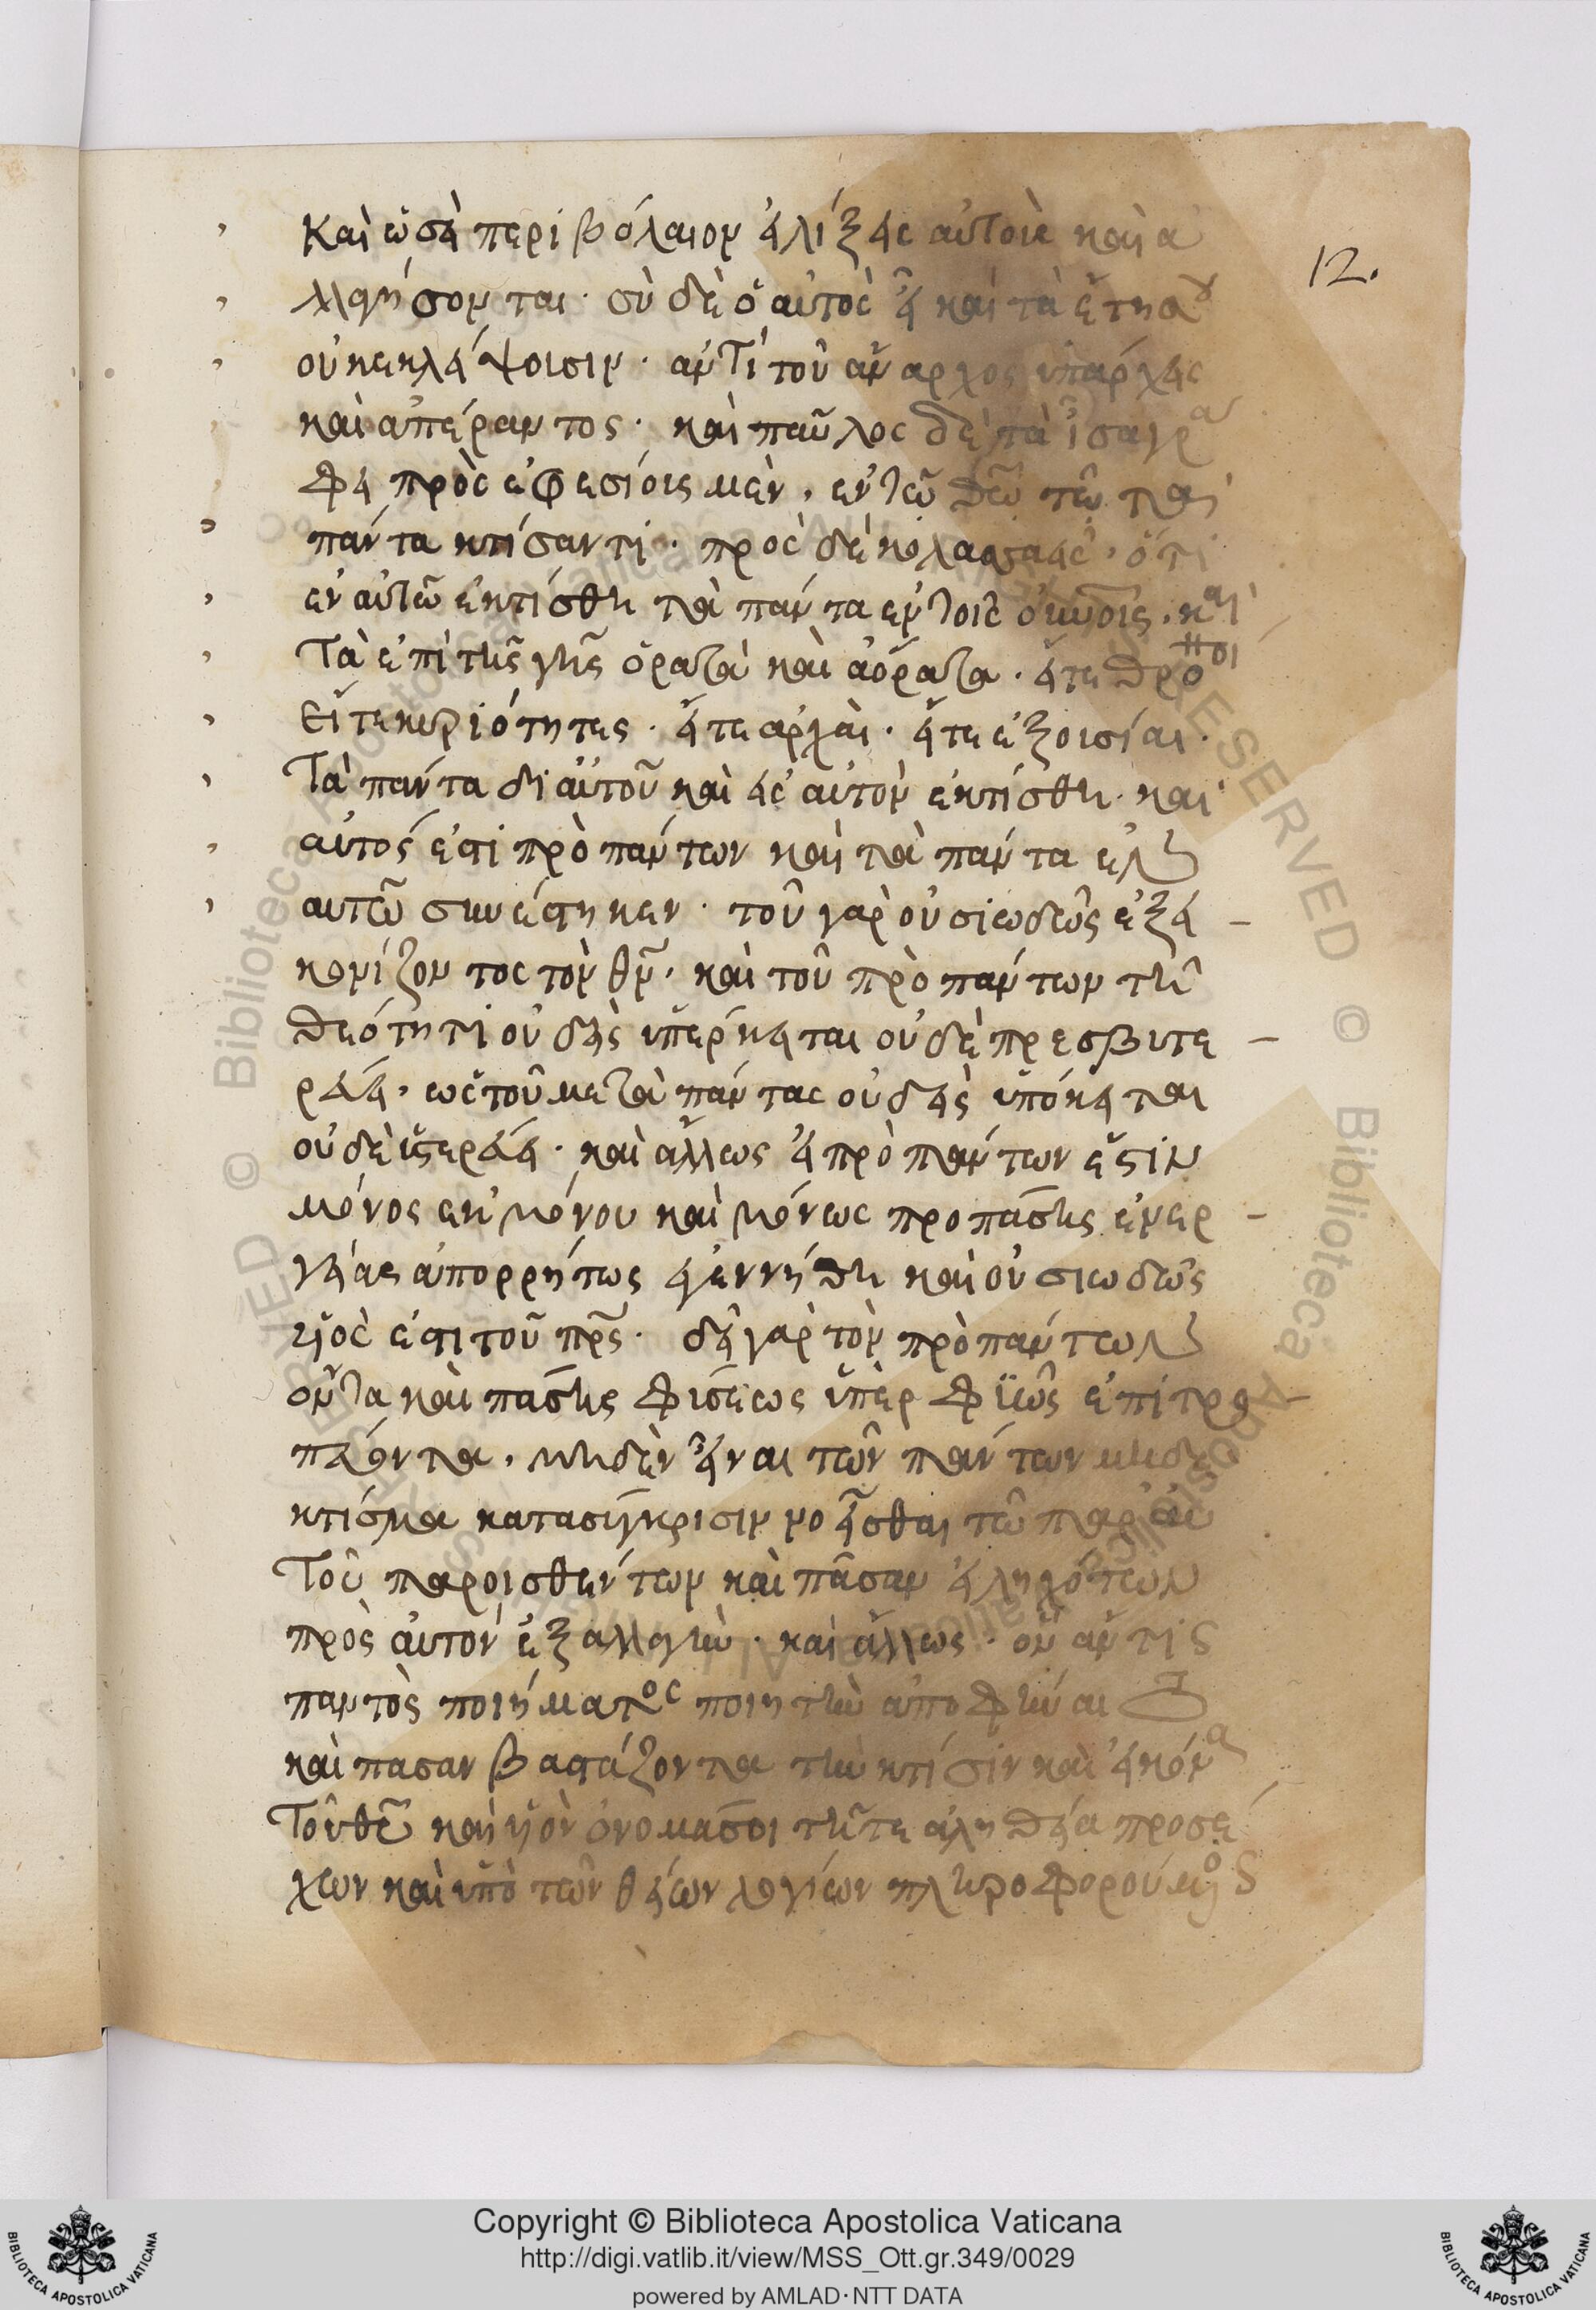 Καὶ ὡσεὶ περιβόλαιον ἑλίξεις αὐτοὺς καὶ ἀ
12.
λλαγήσονται· σὺ δὲ ὁ αὐτὸς εἶ καὶ τὰ ἔτη σου
οὐκ ἐκλείψουσιν· ἀντὶ τοῦ ἄναρχος ὑπάρχεις
καὶ ἀπέραντος· καὶ παῦλος δὲ τὰ ἴσα γρά
φει πρὸς ἐφεσίους μὲν, ἐν τῶ θεῶ τῶ τὰ
πάντα κτίσαντι· πρὸς δὲ κολασσαεῖς, ὅτι
ἐν αὐτῶ ἐκτίσθη τὰ πάντα ἐν τοῖς οὐνοῖς, καὶ
Τὰ ἐπὶ τῆς γῆς ὁρατὰ καὶ ἀόρατα· εἴτε θρόνοι
Εἴτε κυριότητες· εἴτε ἀρχαὶ· εἴτε ἐξουσίαι·
Τὰ πάντα δι αὐτοῦ καὶ εἰς αὐτὸν ἐκτίσθη· καὶ
αὐτός ἐστι πρὸ πάντων καὶ τὰ πάντα ἐν
αυτῶ συνέστηκεν· τοῦ γὰρ οὐσιωδῶς ἐξει
κονίζοντος τὸν θν, καὶ τοῦ πρὸ πάντων τῆ
θεότητι οὐδεὶς ὑπέρκειται οὐδὲ πρεσβυτε
ρεύει, ὡς τοῦ μετὰ πάντας οὐδεὶς ὑπόκειται
οὐδὲ ὑστερεύει· καὶ ἄλλως εἰ πρὸ πάντων ἔστιν
μόνος ἐκ μόνου καὶ μόνως προ πάσης ἐνερ
γείας ἀπορρήτως ἐγεννήθη καὶ οὐσιωδῶς
υἱὸς ἐστι τοῦ πρς· δεῖ γὰρ τὸν πρὸ πάντων
ὄντα καὶ πάσης φύσεως ὑπὲρ φυῶς ἐπιτρο
πεύοντα, μηδὲν εἶναι τῶν πάντων μηδὲ
κτίσμα κατασύγκρισιν νοεῖσθαι τῶ παρ εἰς
Τοῦ παροισθέντων καὶ πᾶσαν εἰληχότων
πρὸς ἀυτὸν ἐξαλλαγὴν· καὶ ἄλλως· ὃν ἄν τις
παντὸς ποιήματος ποιητὴν ἀποφῆναι
καὶ πασαν βαστάζοντα τὴν κτίσιν καὶ εἰκόνα
Τοῦ θυ καὶ υἱὸν ὀνομάσοι τῆ τε ἀληθεία προσέ
χων καὶ ὑπὸ τῶν θείων λογίων πληροφορούμενος
Copyright © Biblioteca Apostolica Vaticana
http://digi.vatlib.it/view/MSS_Ott.gr.349/0029
powered by AMLAD·NTT DATA